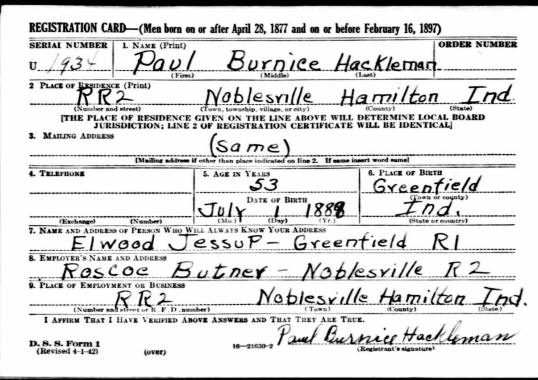 REGISTRATION CARD—(Men born on or after April 28, 1877 and on or before February 16, 1897)
SERIAL NUMBER 1. NAME (Print) ORDER NUMBER
U. 1934 Paul Burnice Hackleman
(First) (Middle) (Last)
2 PLACE OF RESIDENCE (Print)
RR2 Noblesville Hamilton Ind.
(Number and street) (Town, township, village, or city) (County) (State)
[THE PLACE OF RESIDENCE GIVEN ON THE LINE ABOVE WILL DETERMINE LOCAL BOARD
JURISDICTION; LINE 2 OF REGISTRATION CERTIFICATE WILL BE IDENTICAL]
3. MAILING ADDRESS
(Same)
[Mailing address if other than place indicated on line 2. If same insert word same]
4. TELEPHONE 5. AGE IN YEARS 6. PLACE OF BIRTH
53 Greenfield
DATE OF BIRTH (Town or county)
July 1 1888 Ind.
(Exchange) (Number) (Mo.) (Day) (Yr.) (State or country)
7. NAME AND ADDRESS OF PERSON WHO WILL ALWAYS KNOW YOUR ADDRESS
Elwood Jessup - Greenfield R1
8. EMPLOYER'S NAME AND ADDRESS
Roscoe Butner - Noblesville R2
9. PLACE OF EMPLOYMENT OR BUSINESS
RR2 Noblesville Hamilton Ind.
(Number and street or R. F. D. number) (Town) (County) (State)
I AFFIRM THAT I HAVE VERIFIED ABOVE ANSWERS AND THAT THEY ARE TRUE.
Paul Burnice Hackleman
D. S. S. Form 1 16—21630-2 (Registrant's signature)
(Revised 4-1-42) (over)